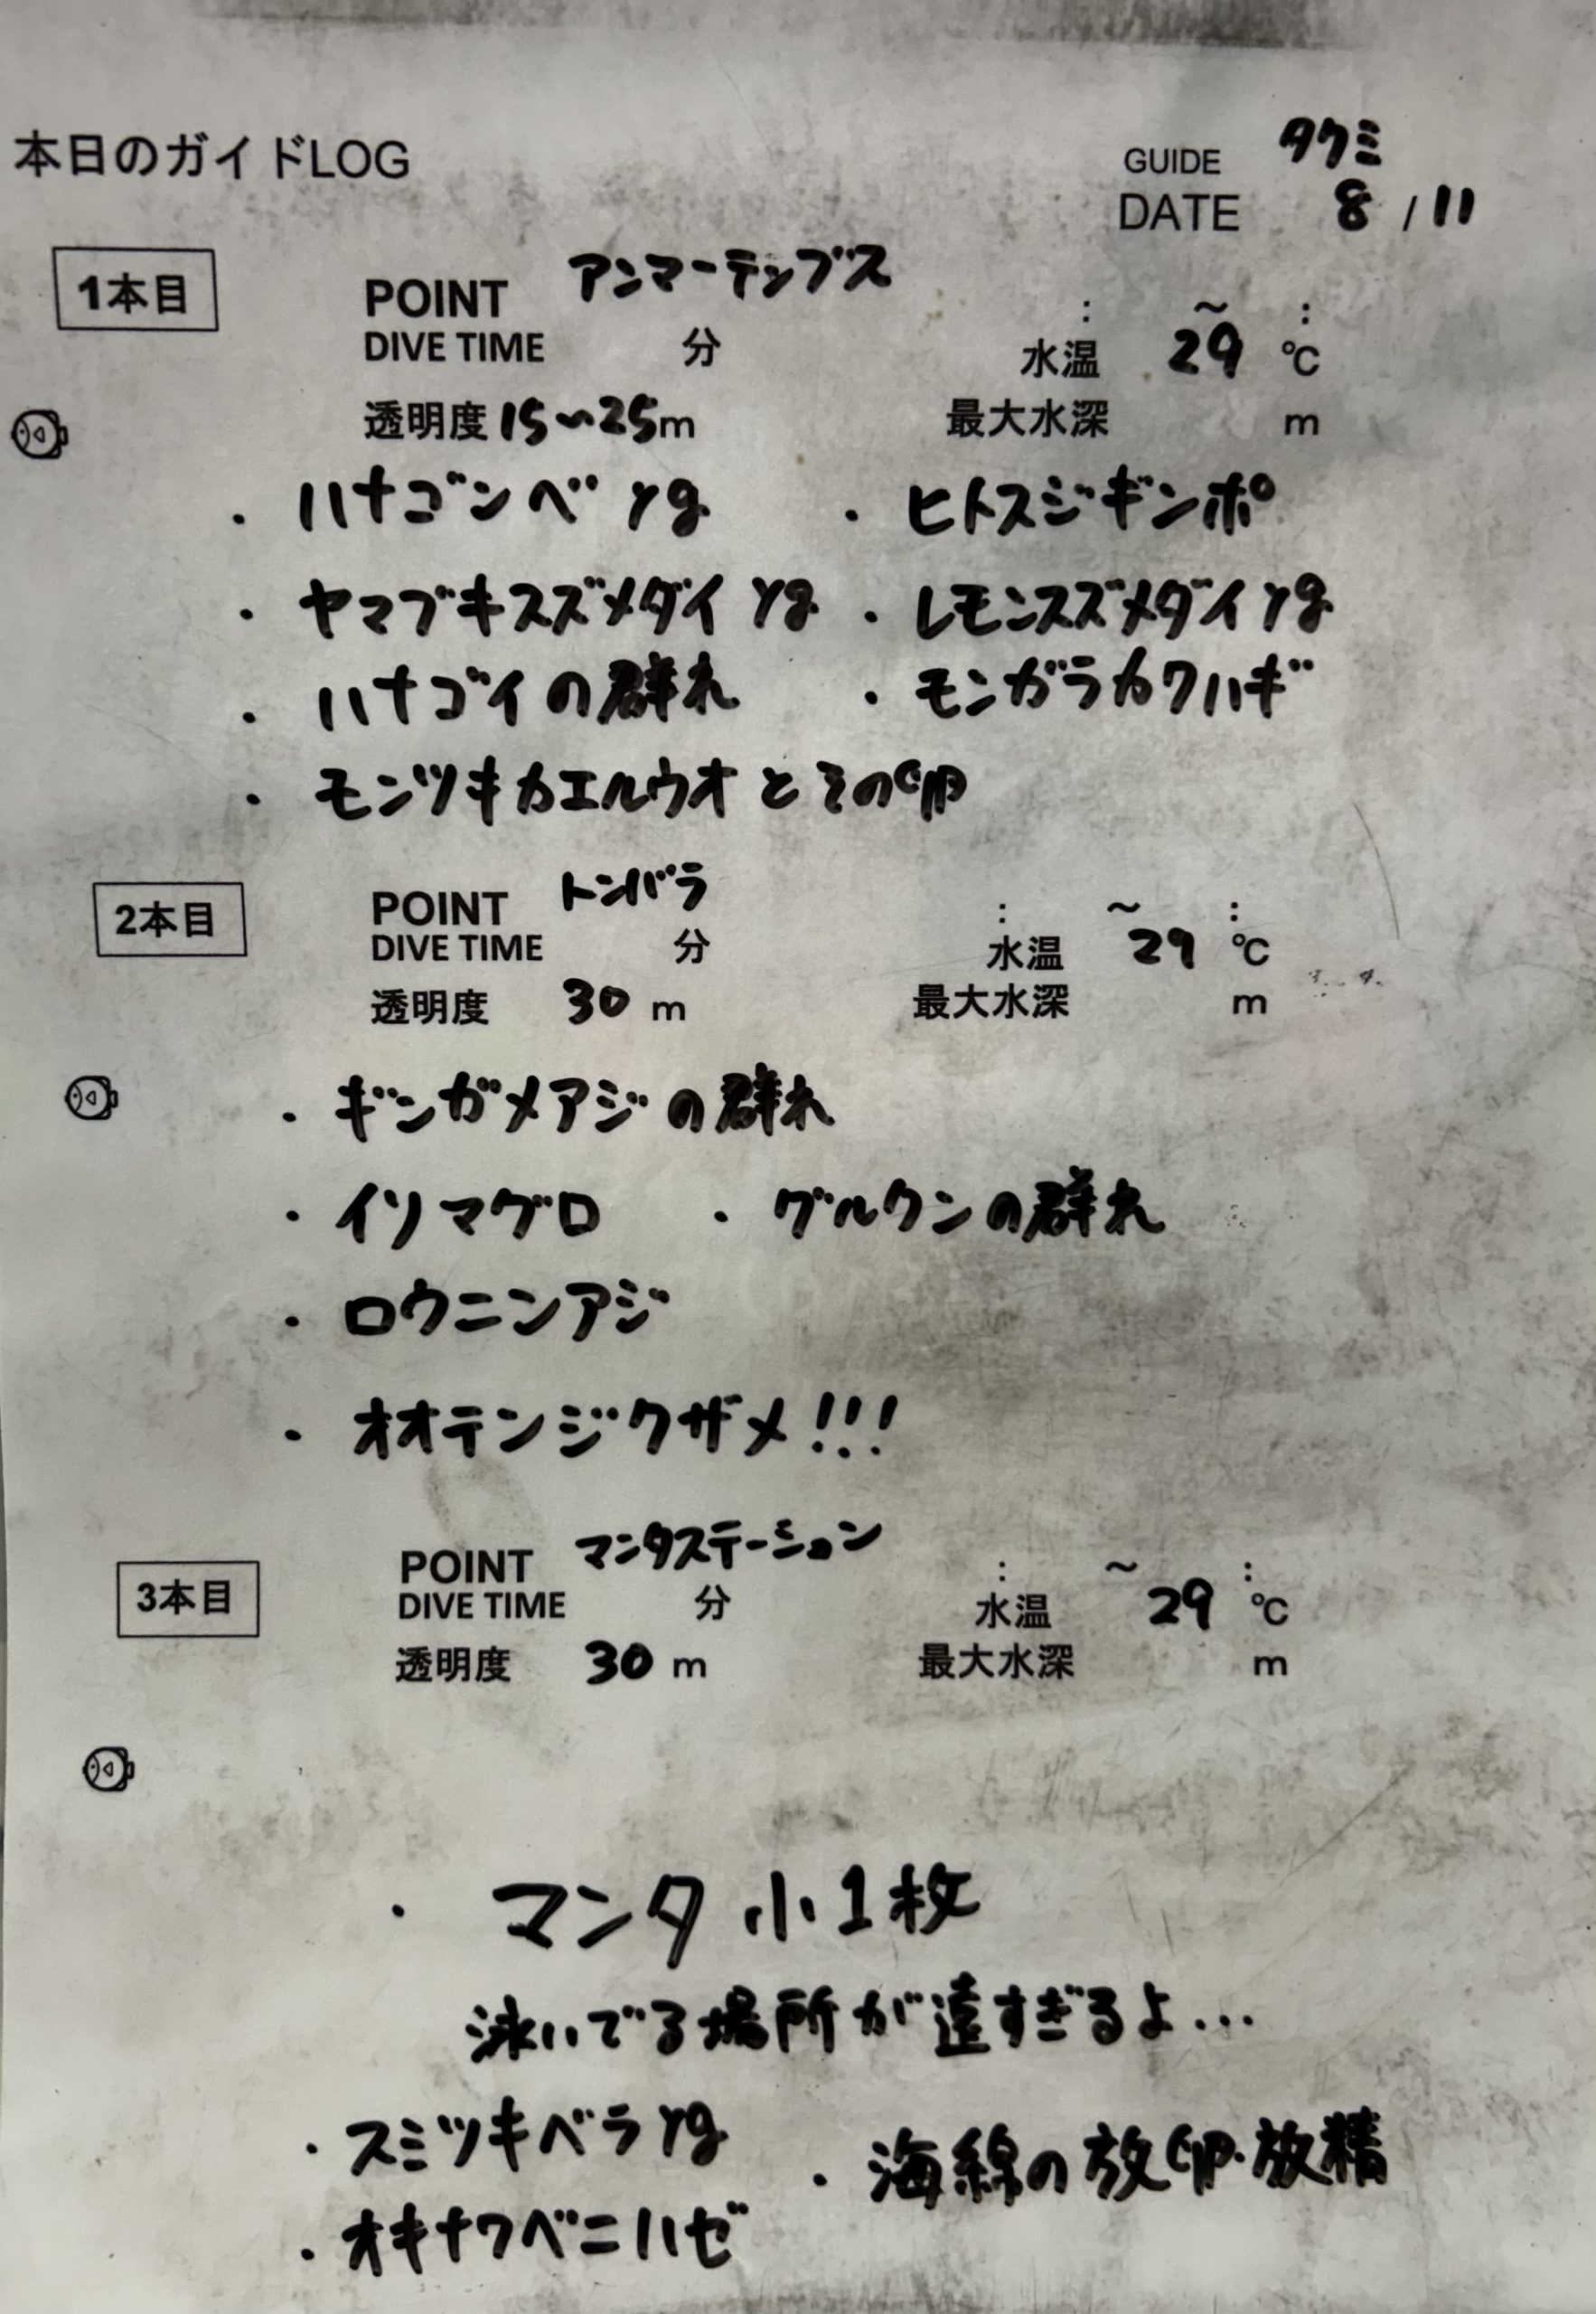 本日のガイドLOG
GUIDE タクミ
DATE 8 / 11
1本目
POINT アンマーテンブス : ～ :
DIVE TIME 分 水温 29 ℃
透明度 15〜25m 最大水深 m
・ハナゴンベ yg ・ヒトスジギンポ
・ヤマブキスズメダイ yg ・レモンスズメダイ yg
・ハナゴイの群れ ・モンガラカワハギ
・モンツキカエルウオとその卵
2本目
POINT トンバラ : ～ :
DIVE TIME 分 水温 29 ℃
透明度 30 m 最大水深 m
・ギンガメアジの群れ
・イソマグロ ・グルクンの群れ
・ロウニンアジ
・オオテンジクザメ!!!
3本目
POINT マンタステーション : ～ :
DIVE TIME 分 水温 29 ℃
透明度 30 m 最大水深 m
・マンタ 小1枚
泳いでる場所が遠すぎるよ...
・スミツキベラ yg ・海綿の放卵・放精
・オキナワベニハゼ